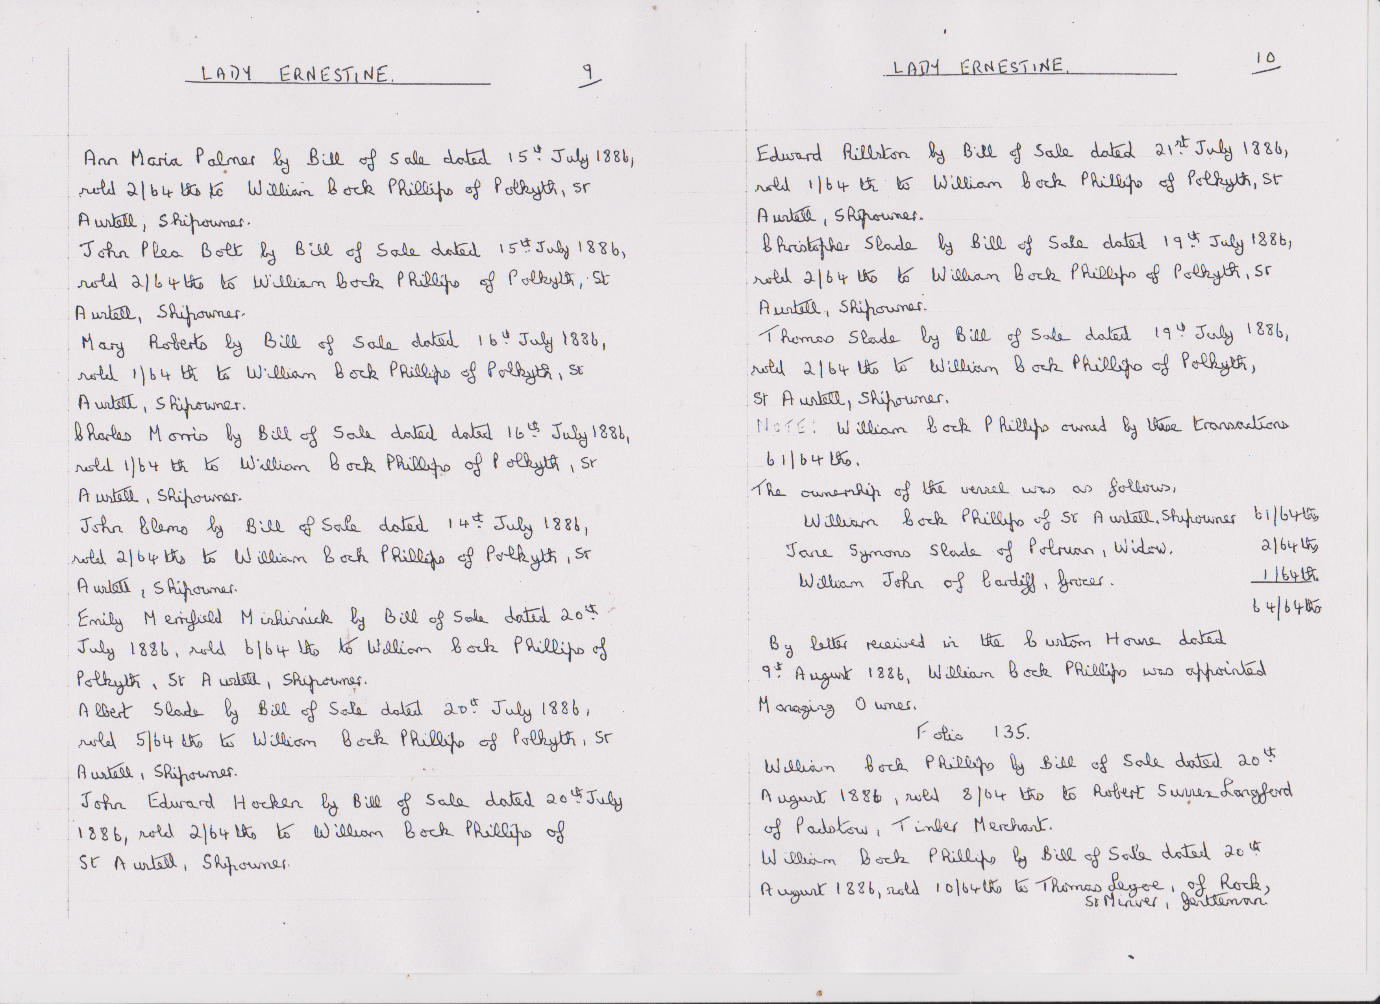 LADY ERNESTINE. 9
Ann Maria Palmer by Bill of Sale dated 15th July 1886,
sold 2/64 ths to William Cock Phillips of Polkyth, St
Austell, Shipowner.
John Plea Bolt by Bill of Sale dated 15th July 1886,
sold 2/64 ths to William Cock Phillips of Polkyth, St
Austell, Shipowner.
Mary Roberts by Bill of Sale dated 16th July 1886,
sold 1/64 th to William Cock Phillips of Polkyth, St
Austell, Shipowner.
Charles Morris by Bill of Sale dated dated 16th July 1886,
sold 1/64 th to William Cock Phillips of Polkyth, St
Austell, Shipowner.
John Clemo by Bill of Sale dated 14th July 1886,
sold 2/64 ths to William Cock Phillips of Polkyth, St
Austell, Shipowner.
Emily Merrifield Minhinnick by Bill of Sale dated 20th
July 1886, sold 6/64 ths to William Cock Phillips of
Polkyth, St Austell, Shipowner.
Albert Slade by Bill of Sale dated 20th July 1886,
sold 5/64 ths to William Cock Phillips of Polkyth, St
Austell, Shipowner.
John Edward Hocken by Bill of Sale dated 20th July
1886, sold 2/64 ths to William Cock Phillips of
St Austell, Shipowner.
LADY ERNESTINE. 10
Edward Rillston by Bill of Sale dated 21st July 1886,
sold 1/64 th to William Cock Phillips of Polkyth, St
Austell, Shipowner.
Christopher Slade by Bill of Sale dated 19th July 1886,
sold 2/64 ths to William Cock Phillips of Polkyth, St
Austell, Shipowner.
Thomas Slade by Bill of Sale dated 19th July 1886,
sold 2/64 ths to William Cock Phillips of Polkyth,
St Austell, Shipowner.
NOTE: William Cock Phillips owned by these transactions
61/64 ths.
The ownership of the vessel was as follows.
William Cock Phillips of St Austell. Shipowner 61/64ths
Jane Symons Slade of Polruan, Widow. 2/64ths
William John of Cardiff, Grocer. 1/64th.
64/64ths
By letter received in the Custom House dated
9th August 1886, William Cock Phillips was appointed
Managing Owner.
Folio 135.
William Cock Phillips by Bill of Sale dated 20th
August 1886, sold 8/64 ths to Robert Sussex Langford
of Padstow, Timber Merchant.
William Cock Phillips by Bill of Sale dated 20th
August 1886, sold 10/64 ths to Thomas Legoe, of Rock,
St Minver, Gentleman